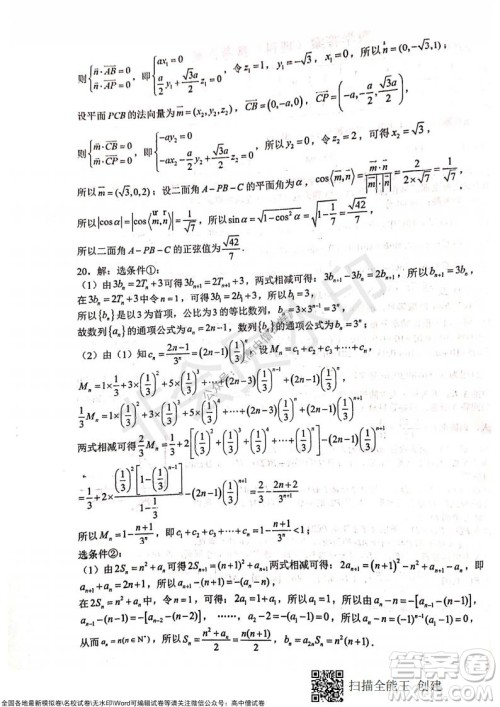 则{n·AB=0, n·AP=0, 即{ax₁=0, a/2 y₁+√3a/2 z₁=0, 令 y₁=-√3, 所以 n=(0,-√3,1);
设平面 PCB 的法向量为 m=(x₂,y₂,z₂), CB=(0,-a,0), CP=(-a,-a/2,√3a/2),
则{m·CB=0, m·CP=0, 即{-ay₂=0, -ax₂-a/2 y₂+√3a/2 z₂=0
所以 m=(√3,0,2); 设二面角 A-PB-C 的平面角为α, cos⟨m,n⟩=m·n/|m|·|n|=2/(2×√7)=1/√7,
所以|cosα|=|cos⟨m,n⟩|=1/√7, 所以 sinα=√(1-cos²α)=√(1-(1/√7)²)=√(6/7)
所以二面角 A-PB-C 的正弦值为 √42/7
20. 解：选条件①：
（1）由 3bₙ=2Tₙ+3 可得 3bₙ₊₁=2Tₙ₊₁+3, 两式相减可得：3bₙ₊₁-3bₙ=2bₙ₊₁, 所以 bₙ₊₁=3bₙ,
在 3bₙ=2Tₙ+3 中，令 n=1, 可得：3b₁=2b₁+3, 所以 b₁=3,
所以{bₙ}是以 3 为首项，公比为 3 的等比数列，所以 bₙ=3×3ⁿ⁻¹=3ⁿ,
故数列{aₙ}的通项公式为 aₙ=2n-1, 数列{bₙ}的通项公式为 bₙ=3ⁿ;
（2）由（1）知 cₙ=(2n-1)/3ⁿ=(2n-1)(1/3)ⁿ 设 Mₙ=c₁+c₂+c₃+⋯+cₙ
Mₙ=1×1/3+3×(1/3)²+5×(1/3)³+⋯+(2n-1)(1/3)ⁿ
1/3 Mₙ=1×(1/3)²+3×(1/3)³+5×(1/3)⁴+⋯+(2n-1)(1/3)ⁿ⁺¹
两式相减可得 2/3 Mₙ=1/3+2[(1/3)²+(1/3)³+⋯+(1/3)ⁿ]-(2n-1)(1/3)ⁿ⁺¹
所以 Mₙ=1-(n+1)/3ⁿ, 即 c₁+c₂+⋯+cₙ=1-(n+1)/3ⁿ;
选条件②：
（1）由 2Sₙ=n²+aₙ 可得 2Sₙ₊₁=(n+1)²+aₙ₊₁, 两式相减可得 2aₙ₊₁=(n+1)²-n²+aₙ₊₁-aₙ, 即
aₙ₊₁+aₙ=2n+1,
在 2Sₙ=n²+aₙ 中，令 n=1, 可得：2a₁=1+a₁, 所以 a₁=1,
从而 aₙ=n(n∈N*), 所以 Sₙ=(n²+aₙ)/2=(n²+n)/2,
扫描全能王 创建
全国各地最新模拟卷\名校试卷\无水印\Word可编辑试卷等请关注微信公众号：高中僧试卷